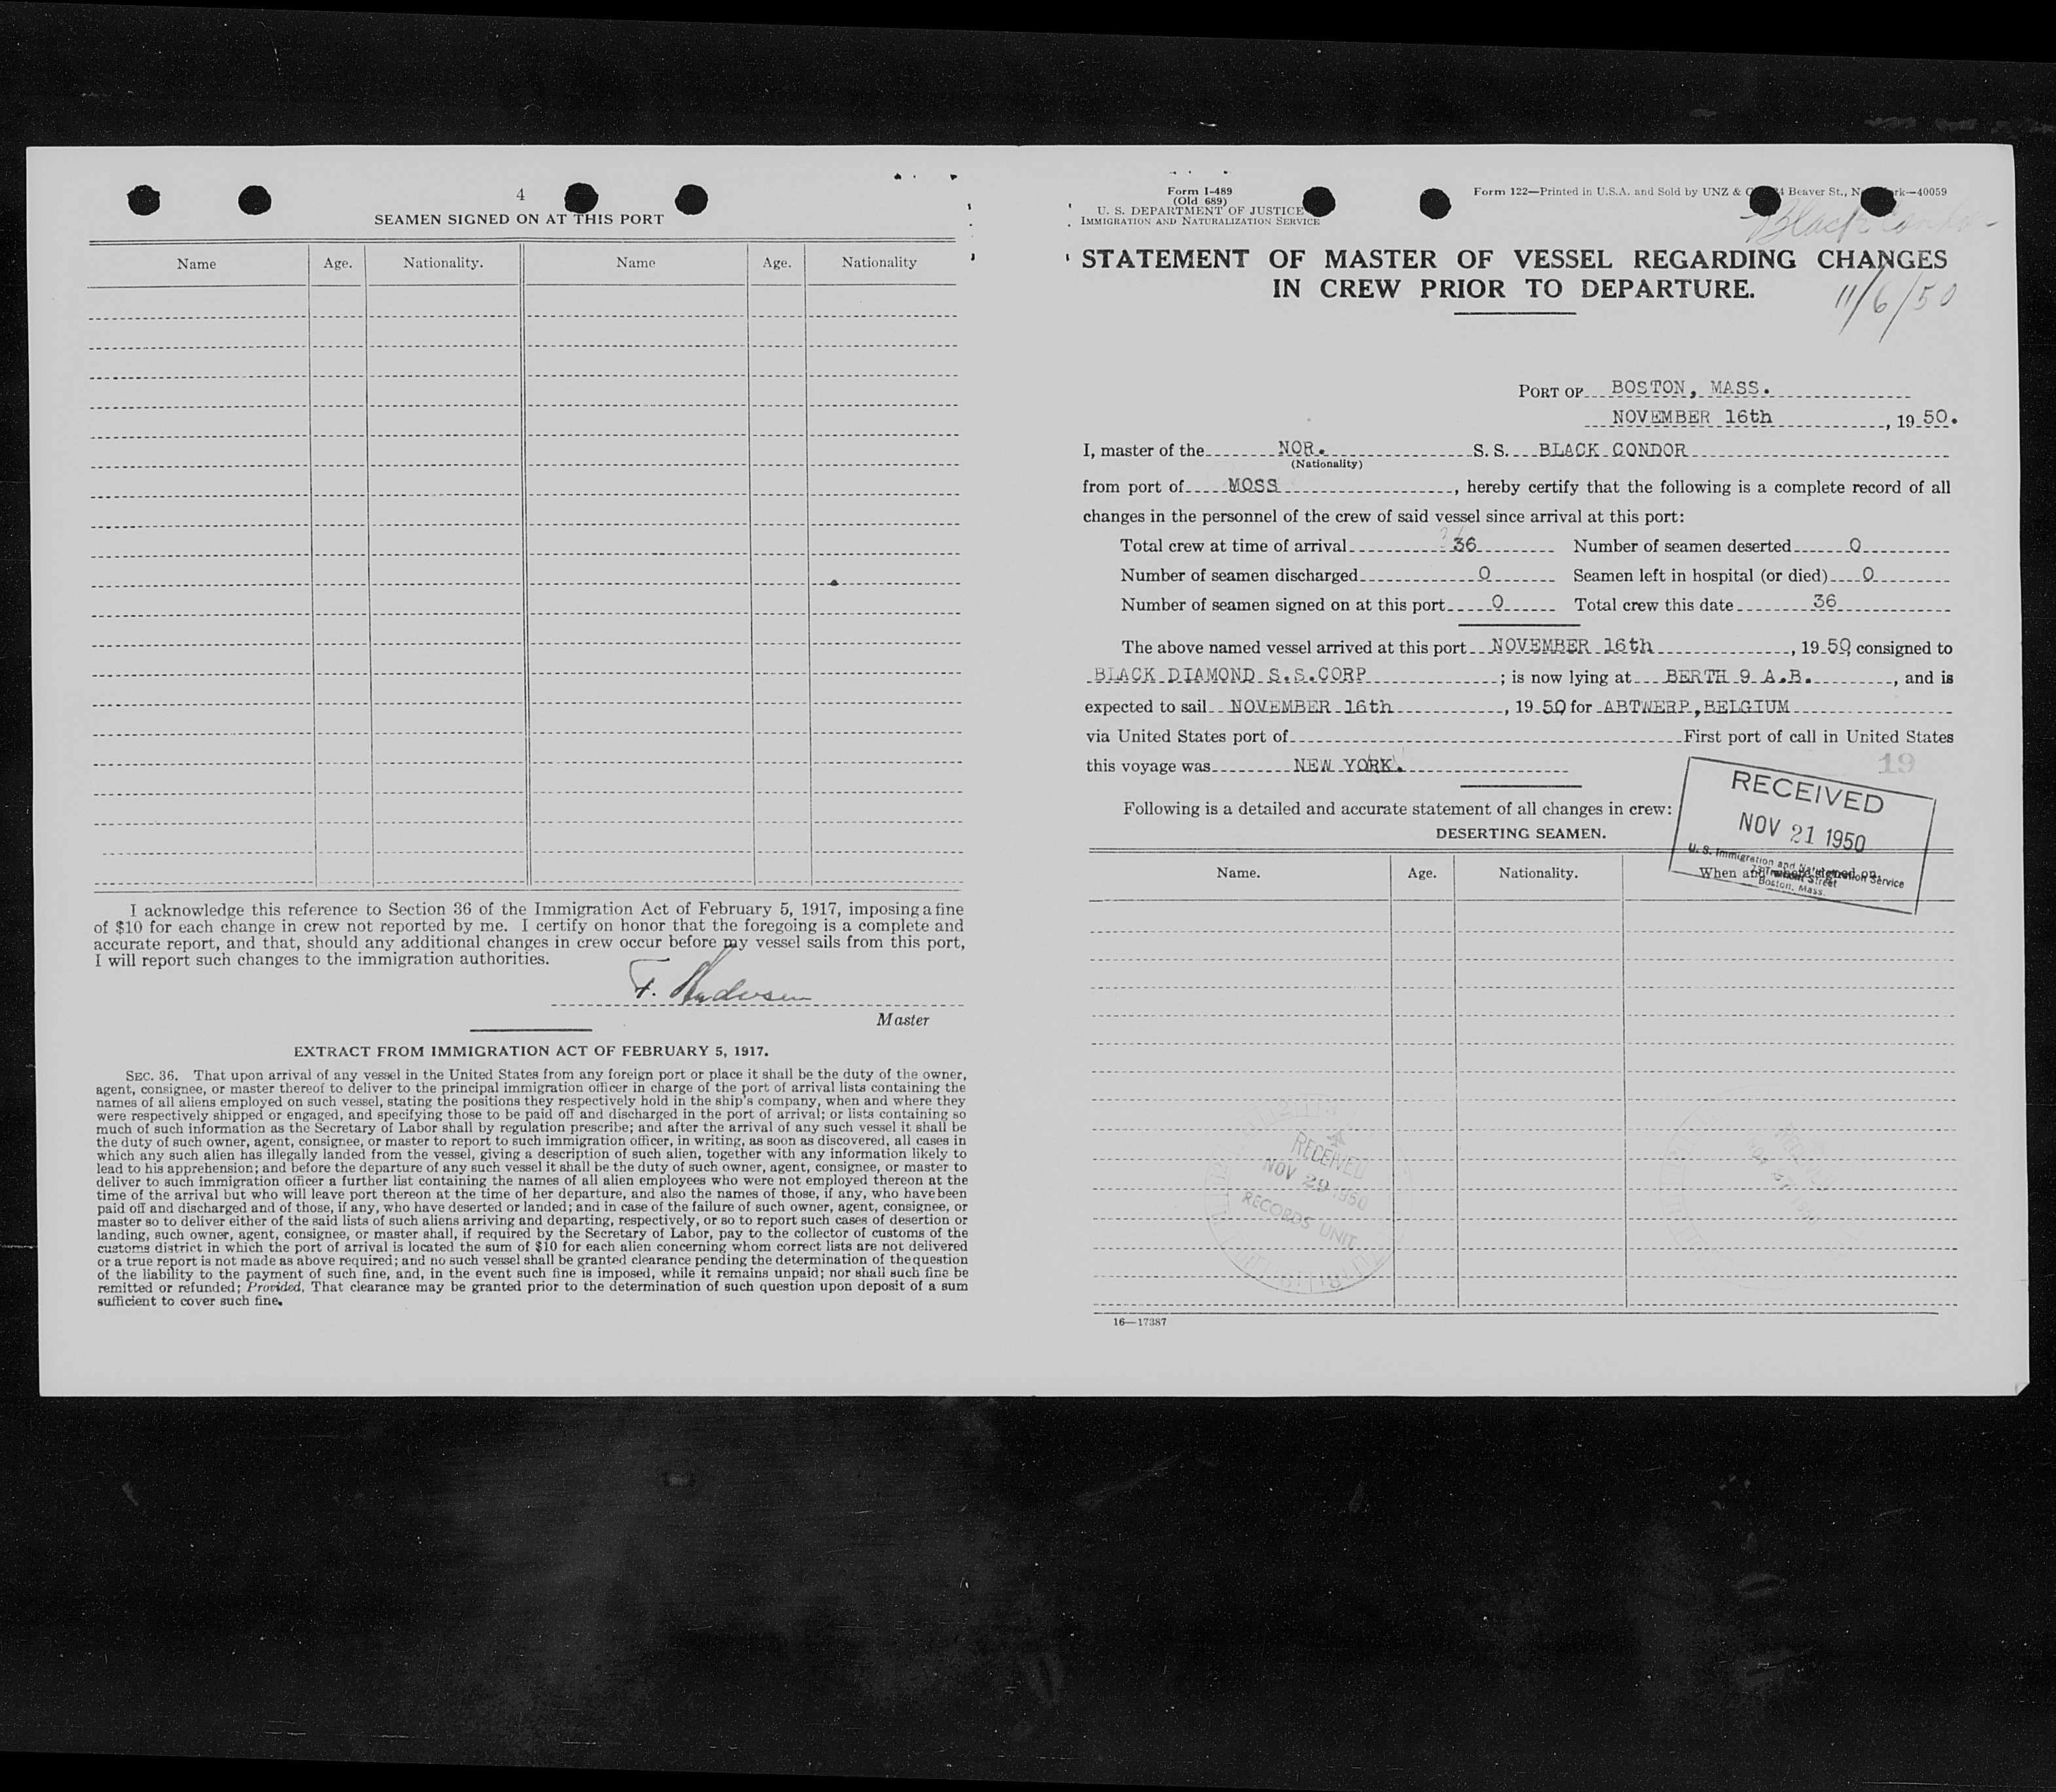 4
SEAMEN SIGNED ON AT THIS PORT
Name Age. Nationality. Name Age. Nationality
I acknowledge this reference to Section 36 of the Immigration Act of February 5, 1917, imposing a fine
of $10 for each change in crew not reported by me. I certify on honor that the foregoing is a complete and
accurate report, and that, should any additional changes in crew occur before my vessel sails from this port,
I will report such changes to the immigration authorities.
Master
EXTRACT FROM IMMIGRATION ACT OF FEBRUARY 5, 1917.
SEC. 36. That upon arrival of any vessel in the United States from any foreign port or place it shall be the duty of the owner,
agent, consignee, or master thereof to deliver to the principal immigration officer in charge of the port of arrival lists containing the
names of all aliens employed on such vessel, stating the positions they respectively hold in the ship's company, when and where they
were respectively shipped or engaged, and specifying those to be paid off and discharged in the port of arrival; or lists containing so
much of such information as the Secretary of Labor shall by regulation prescribe; and after the arrival of any such vessel it shall be
the duty of such owner, agent, consignee, or master to report to such immigration officer, in writing, as soon as discovered, all cases in
which any such alien has illegally landed from the vessel, giving a description of such alien, together with any information likely to
lead to his apprehension; and before the departure of any such vessel it shall be the duty of such owner, agent, consignee, or master to
deliver to such immigration officer a further list containing the names of all alien employees who were not employed thereon at the
time of the arrival but who will leave port thereon at the time of her departure, and also the names of those, if any, who have been
paid off and discharged and of those, if any, who have deserted or landed; and in case of the failure of such owner, agent, consignee, or
master so to deliver either of the said lists of such aliens arriving and departing, respectively, or so to report such cases of desertion or
landing, such owner, agent, consignee, or master shall, if required by the Secretary of Labor, pay to the collector of customs of the
customs district in which the port of arrival is located the sum of $10 for each alien concerning whom correct lists are not delivered
or a true report is not made as above required; and no such vessel shall be granted clearance pending the determination of the question
of the liability to the payment of such fine, and, in the event such fine is imposed, while it remains unpaid; nor shall such fine be
remitted or refunded; Provided, That clearance may be granted prior to the determination of such question upon deposit of a sum
sufficient to cover such fine.
Form I-489
(Old 689)
U. S. DEPARTMENT OF JUSTICE
IMMIGRATION AND NATURALIZATION SERVICE
Form 122—Printed in U.S.A. and Sold by UNZ & Beaver St., 40059
Black Condor
STATEMENT OF MASTER OF VESSEL REGARDING CHANGES
IN CREW PRIOR TO DEPARTURE.
11/6/50
PORT OF BOSTON, MASS.
NOVEMBER 16th, 19 50.
I, master of the NOR. S. S. BLACK CONDOR
(Nationality)
from port of MOSS, hereby certify that the following is a complete record of all
changes in the personnel of the crew of said vessel since arrival at this port:
Total crew at time of arrival 36 Number of seamen deserted 0
Number of seamen discharged 0 Seamen left in hospital (or died) 0
Number of seamen signed on at this port 0 Total crew this date 36
The above named vessel arrived at this port NOVEMBER 16th, 19 50 consigned to
BLACK DIAMOND S.S.CORP; is now lying at BERTH 9 A.B., and is
expected to sail NOVEMBER 16th, 19 50 for ABTWERP,BELGIUM
via United States port of First port of call in United States
this voyage was NEW YORK.
19
Following is a detailed and accurate statement of all changes in crew:
RECEIVED
NOV 21 1950
U. S. Immigration and Naturalization Service
Boston, Mass.
DESERTING SEAMEN.
Name. Age. Nationality. When and
RECEIVED
NOV 29 1950
RECORDS UNIT
16—17387